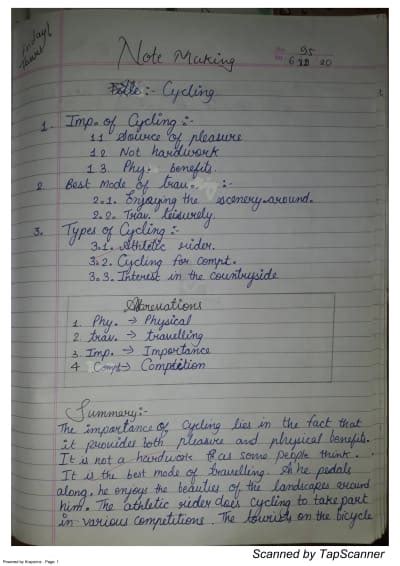 Note Making
95
6 12 20
Title:- Cycling
1. Imp. of Cycling :-
1.1 Source of pleasure
1.2 Not hardwork
1.3. Phy. benefits.
2. Best Mode of trav. :-
2.1. Enjoying the scenery around.
2.2. Trav. leisurely.
3. Types of Cycling :-
3.1. Athletic rider.
3.2. Cycling for compt.
3.3. Interest in the countryside
Abbreviations
1. Phy. → Physical
2. trav. → travelling
3. Imp. → Importance
4 Compt → Comptition
Summery:-
The importance of Cycling lies in the fact that
it provides both pleasure and physical benefits.
It is not a hardwork as some people think.
It is the best mode of travelling. As he pedals
along, he enjoys the beauties of the landscapes around
him. The athletic rider does cycling to take part
in various competitions. The tourists on the bicycle
Scanned by TapScanner
Powered by Krapomix - Page: 1